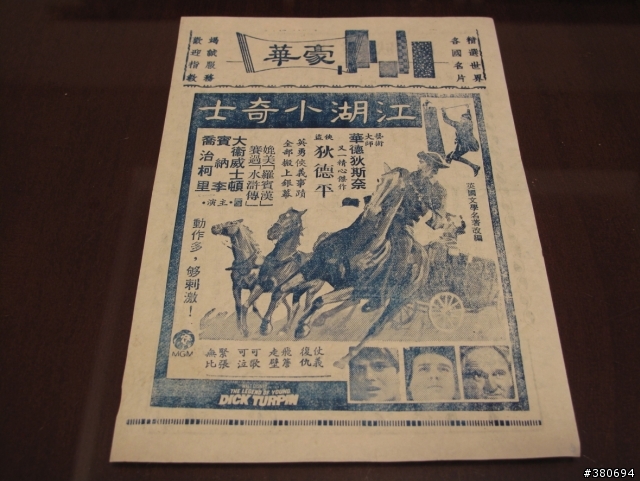 精選世界
各國名片
豪華
竭誠服務
歡迎指教
江湖小奇士
英國文學名著改編
藝術大師
華德狄斯奈
又一精心傑作
俠盜
狄德平
英勇俠義事蹟
全部搬上銀幕
媲美「羅賓漢」
賽過「水滸傳」
大衛威士頓
賓納李
喬治柯里
主演
動作多，够刺激！
MGM
仗義復仇
飛簷走壁
可歌可泣
緊張無比
THE LEGEND OF YOUNG
DICK TURPIN
#380694